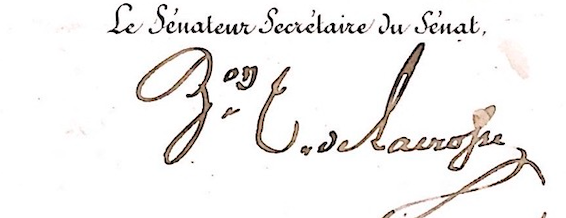 Le Sénateur Secrétaire du Sénat,
Bon T. de Lacrosse